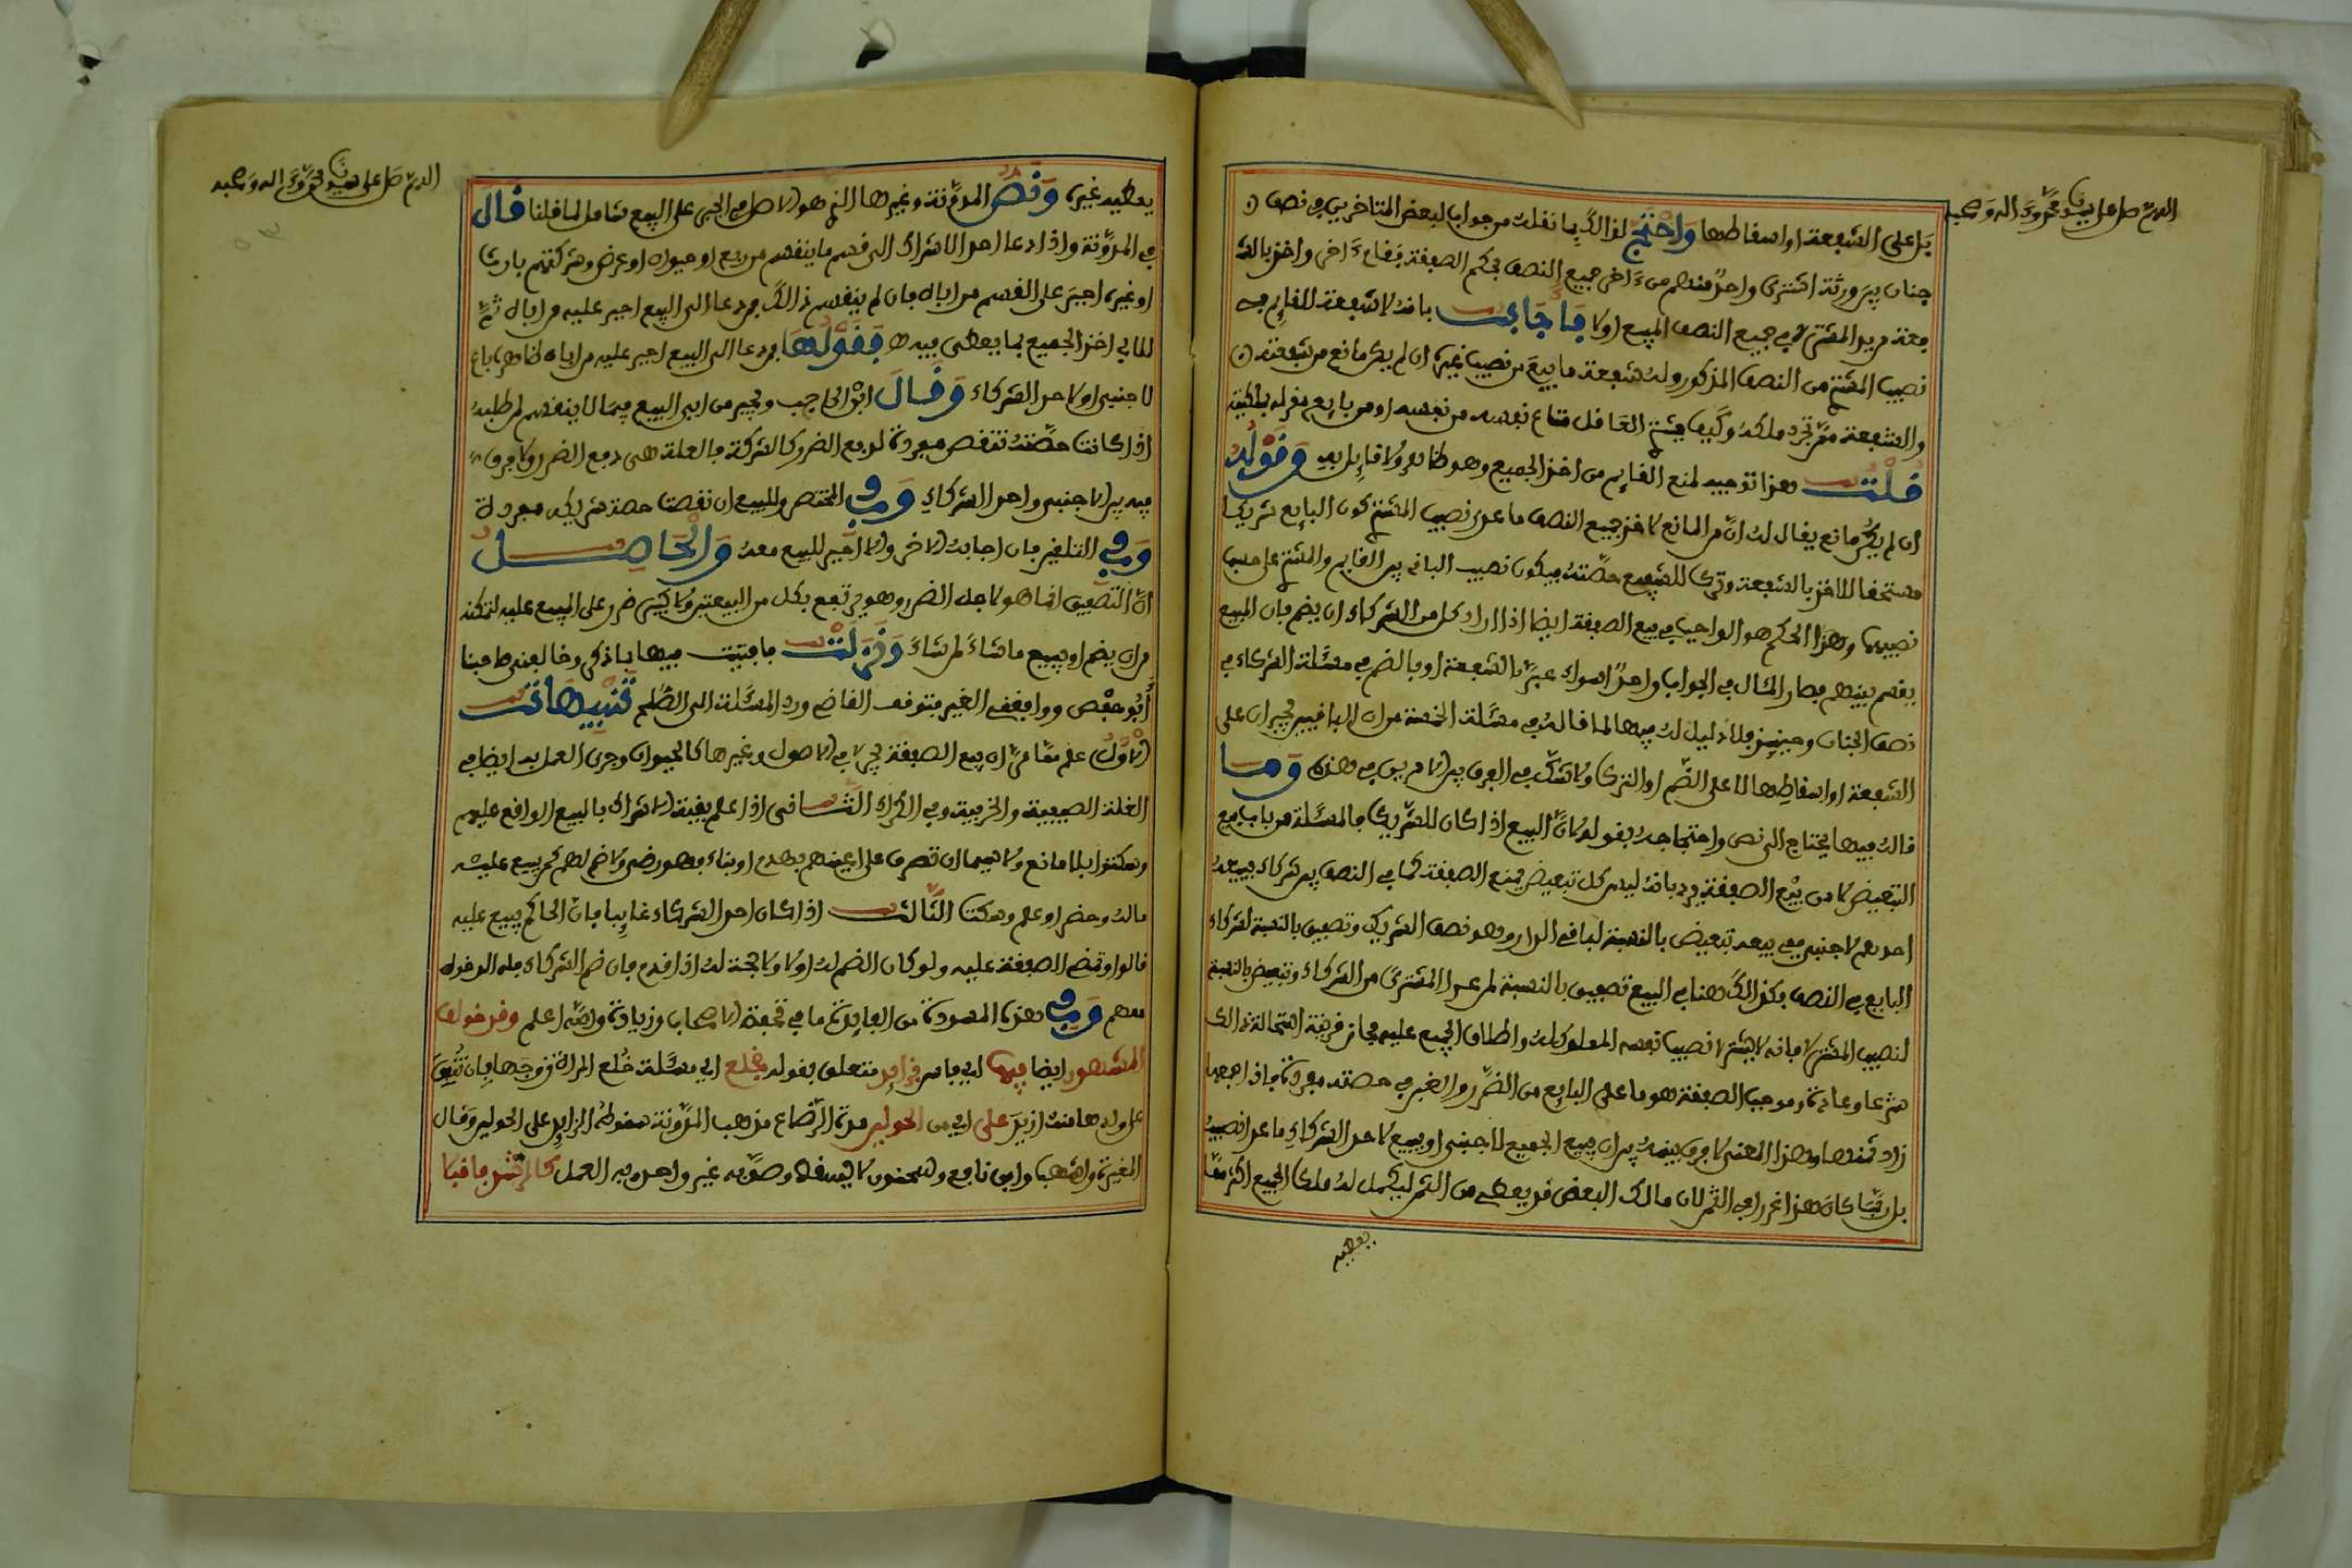 اللهم صل على سيدنا محمد وءاله وصحبه
بل على الشفعة او اسقاطها واحتج لذالك بما نقلت من جواب لبعض المتاخرين في نصف
جنان بين ورثة اشترى واحد منهم من ءاخر جميع النصف بحكم الصفقة فقام ءاخر واخذ بالشفعة
معه مريد المشتري جميع النصف المبيع اولا فاجابت بانه لا شفعة للقايم في
نصيب المشتري من النصف المذكور وله شفعة ما بيع من نصيب غيره ان لم يكن مانع من شفعته
والشفعة بتجرد ملكه وكيف يشتري العاقل متاع نفسه من نفسه او من بايع مقر له بملكيته
قلت هذا توجيه لمنع القايم من اخذ الجميع وهو ظاهر ولا قايل به وقوله
ان لم يكن مانع يقال له ان من المانع لاخذ جميع النصف ما عدى نصيب المشتري كون البايع شريكا
مستحقا للاخذ بالشفعة وترك للشفيع حصته فيكون نصيب البايع بين القايم والمشتري على حسب
نصيبهما وهذا الحكم هو الواجب في بيع الصفقة ايضا اذا اراد كل من الشركاء ان يضم فان المبيع
يقسم بينهم فصار المثال في الجواب واحد اسواء عبر بالشفعة او بالضم في مسئلة الشركاء في
نصف الجنان وحينئذ فلا دليل له فيها لما قاله في مسئلة الخمسة من ان الباقيين يجبران على
الشفعة او اسقاطها لا على الضم او الترك ولا شك في الفرق بين الامرين في هذه وما
قاله فيها يحتاج الى نص واحتجاجه بقوله لان البيع اذا كان للشريك فالمسئلة من باب بيع
التبعيض لا من بيع الصفقة يرد بانه ليس كل تبعيض يمنع الصفقة كما في النصف بين شركاء يبيعه
احدهم لاجنبي ففي بيعه تبعيض بالنسبة لباقي الدار وهو نصف الشريك وتصفيق بالنسبة لشركاء
البايع في النصف فكذالك هنا في البيع تصفيق بالنسبة لمن عدا المشتري من الشركاء وتبعيض بالنسبة
لنصيب المشتري لانه لا يشتري نصيب نفسه المملوك له واطلاق الجميع عليه مجاز قرينة استحالة ذالك
شرعا وعادة وموجب الصفقة هو ما على البايع من الضرر والغبن في حصته مفردة فاذا جمعها
زاد ثمنها وهذا المعنى لا فرق فيه بين ان يبيع الجميع لاجنبي او يبيع لاحد الشركاء ما عدا نصيبه
بل ربما كان هذا اغزر في الثمن لان مالك البعض قد يعطي من الثمن ليكمل له ملك الجميع اكثر مما
يعطيه
اللهم صل على سيدنا محمد وءاله وصحبه
يعطيه غيره ونص المدونة وغيرها الذي هو الاصل في الجبر على البيع شامل لما قلنا قال
في المدونة واذا دعا احد الاشراك الى قسم ما ينقسم من ربع او حيوان او عرض وشركتهم بارث
او غيره اجبر على القسم من اباه فان لم ينقسم ذالك فمن دعا الى البيع اجبر عليه من اباه ثم
للابي اخذ الجميع بما يعطى فيه ه فقولها فمن دعا الى البيع اجبر عليه من اباه ظاهره باع
لاجنبي او لاحد الشركاء وقال ابن الحاجب ويجبر من ابى البيع فيما لا ينقسم لمن طلبه
اذا كانت حصته تنقص مفردة لدفع الضرر كالشركة فالعلة هي دفع الضرر ولا فرق
فيه بين الاجنبي واحد الشركاء وفي المختصر وللبيع ان نقصت حصة شريكه مفردة
وفي التلقين فان اجابه الاخر والا اجبر للبيع معه والحاصل
ان التصفيق انما هو لاجل الضرر وهو مرتفع بكل من البيعتين ولا كبير ضرر على المبيع عليه لتمكنه
من ان يضم او يبيع ما شاء لمن شاء وقد نزلت فافتيت فيها بما ذكر وخالفني صاحبنا
ابو حفص ووافقه الغير فتوقف القاضي ورد المسئلة الى الصلح تنبيهات
الاول علم مما مر ان بيع الصفقة يجري في الاصول وغيرها كالحيوان وجرى العمل به ايضا في
الغلة الصيفية والخريفية وفي الكراء الثاني اذا علم بقية الاشراك بالبيع الواقع عليهم
وسكتوا بلا مانع ولا سيما ان تصرف على اعينهم بهدم او بناء فهو رضى ولا ضم لهم كمن بيع عليه
ماله وحضر او علم وسكت الثالث اذا كان احد الشركاء غايبا فان الحاكم يبيع عليه
قالوا وتمضي الصفقة عليه ولو كان الضم له اولا ولا حجة له اذا قدم فان ضم الشركاء فله الدخول
معهم وفي هذه المسودة من الفايدة ما في تحفة الاصحاب وزيادة والله اعلم وقد خولف
المشهور ايضا فيها اي فاس في زايد متعلق بقوله بخلع اي مسئلة خلع المراة زوجها بان تنفق
على ولدها منه ازيد على اي من الحولين مدة الرضاع مذهب المدونة سقوط الزايد على الحولين وقال
المغيرة واشهب وابن نافع وسحنون لا يسقط وصوبه غير واحد وبه العمل كالرشد فافيا